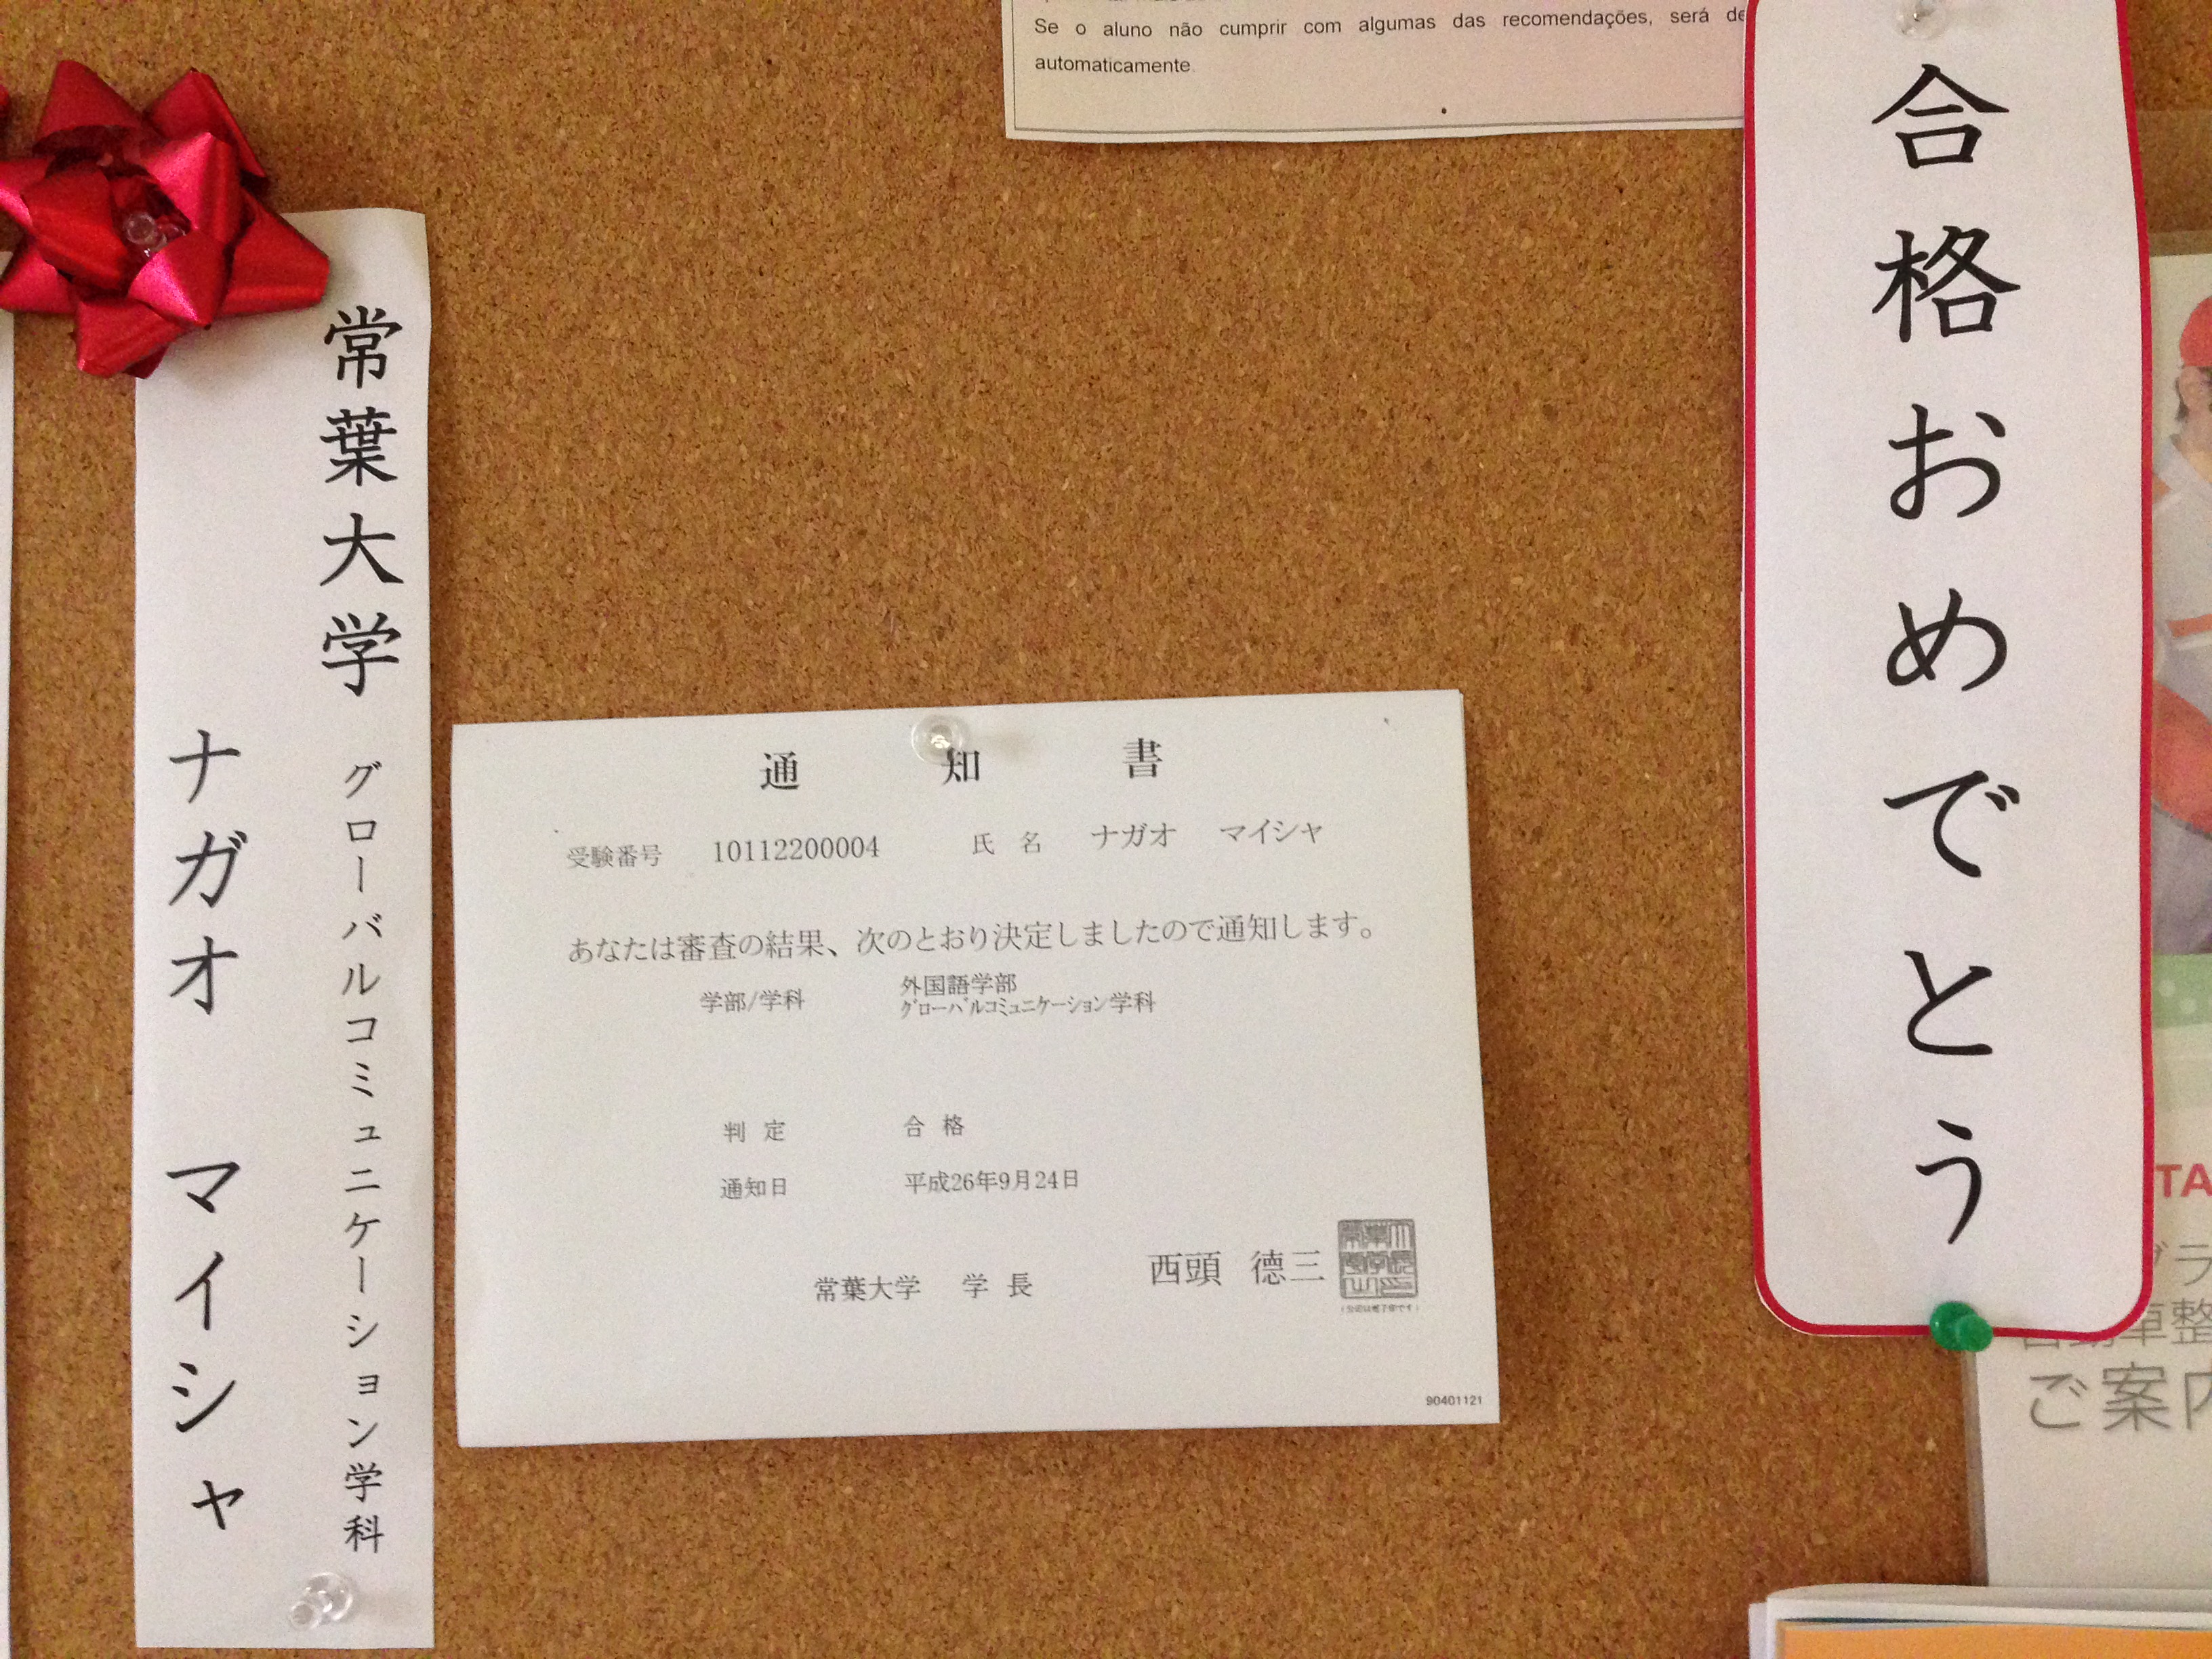 Se o aluno não cumprir com algumas das recomendações, será
automaticamente
合格おめでとう
常葉大学 グローバルコミュニケーション学科
ナガオ マイシャ
通知書
受験番号 10112200004 氏名 ナガオ マイシャ
あなたは審査の結果、次のとおり決定しましたので通知します。
学部/学科 外国語学部
グローバルコミュニケーション学科
判定 合格
通知日 平成26年9月24日
常葉大学 学長 西頭 德三
90401121
TA
ご案内